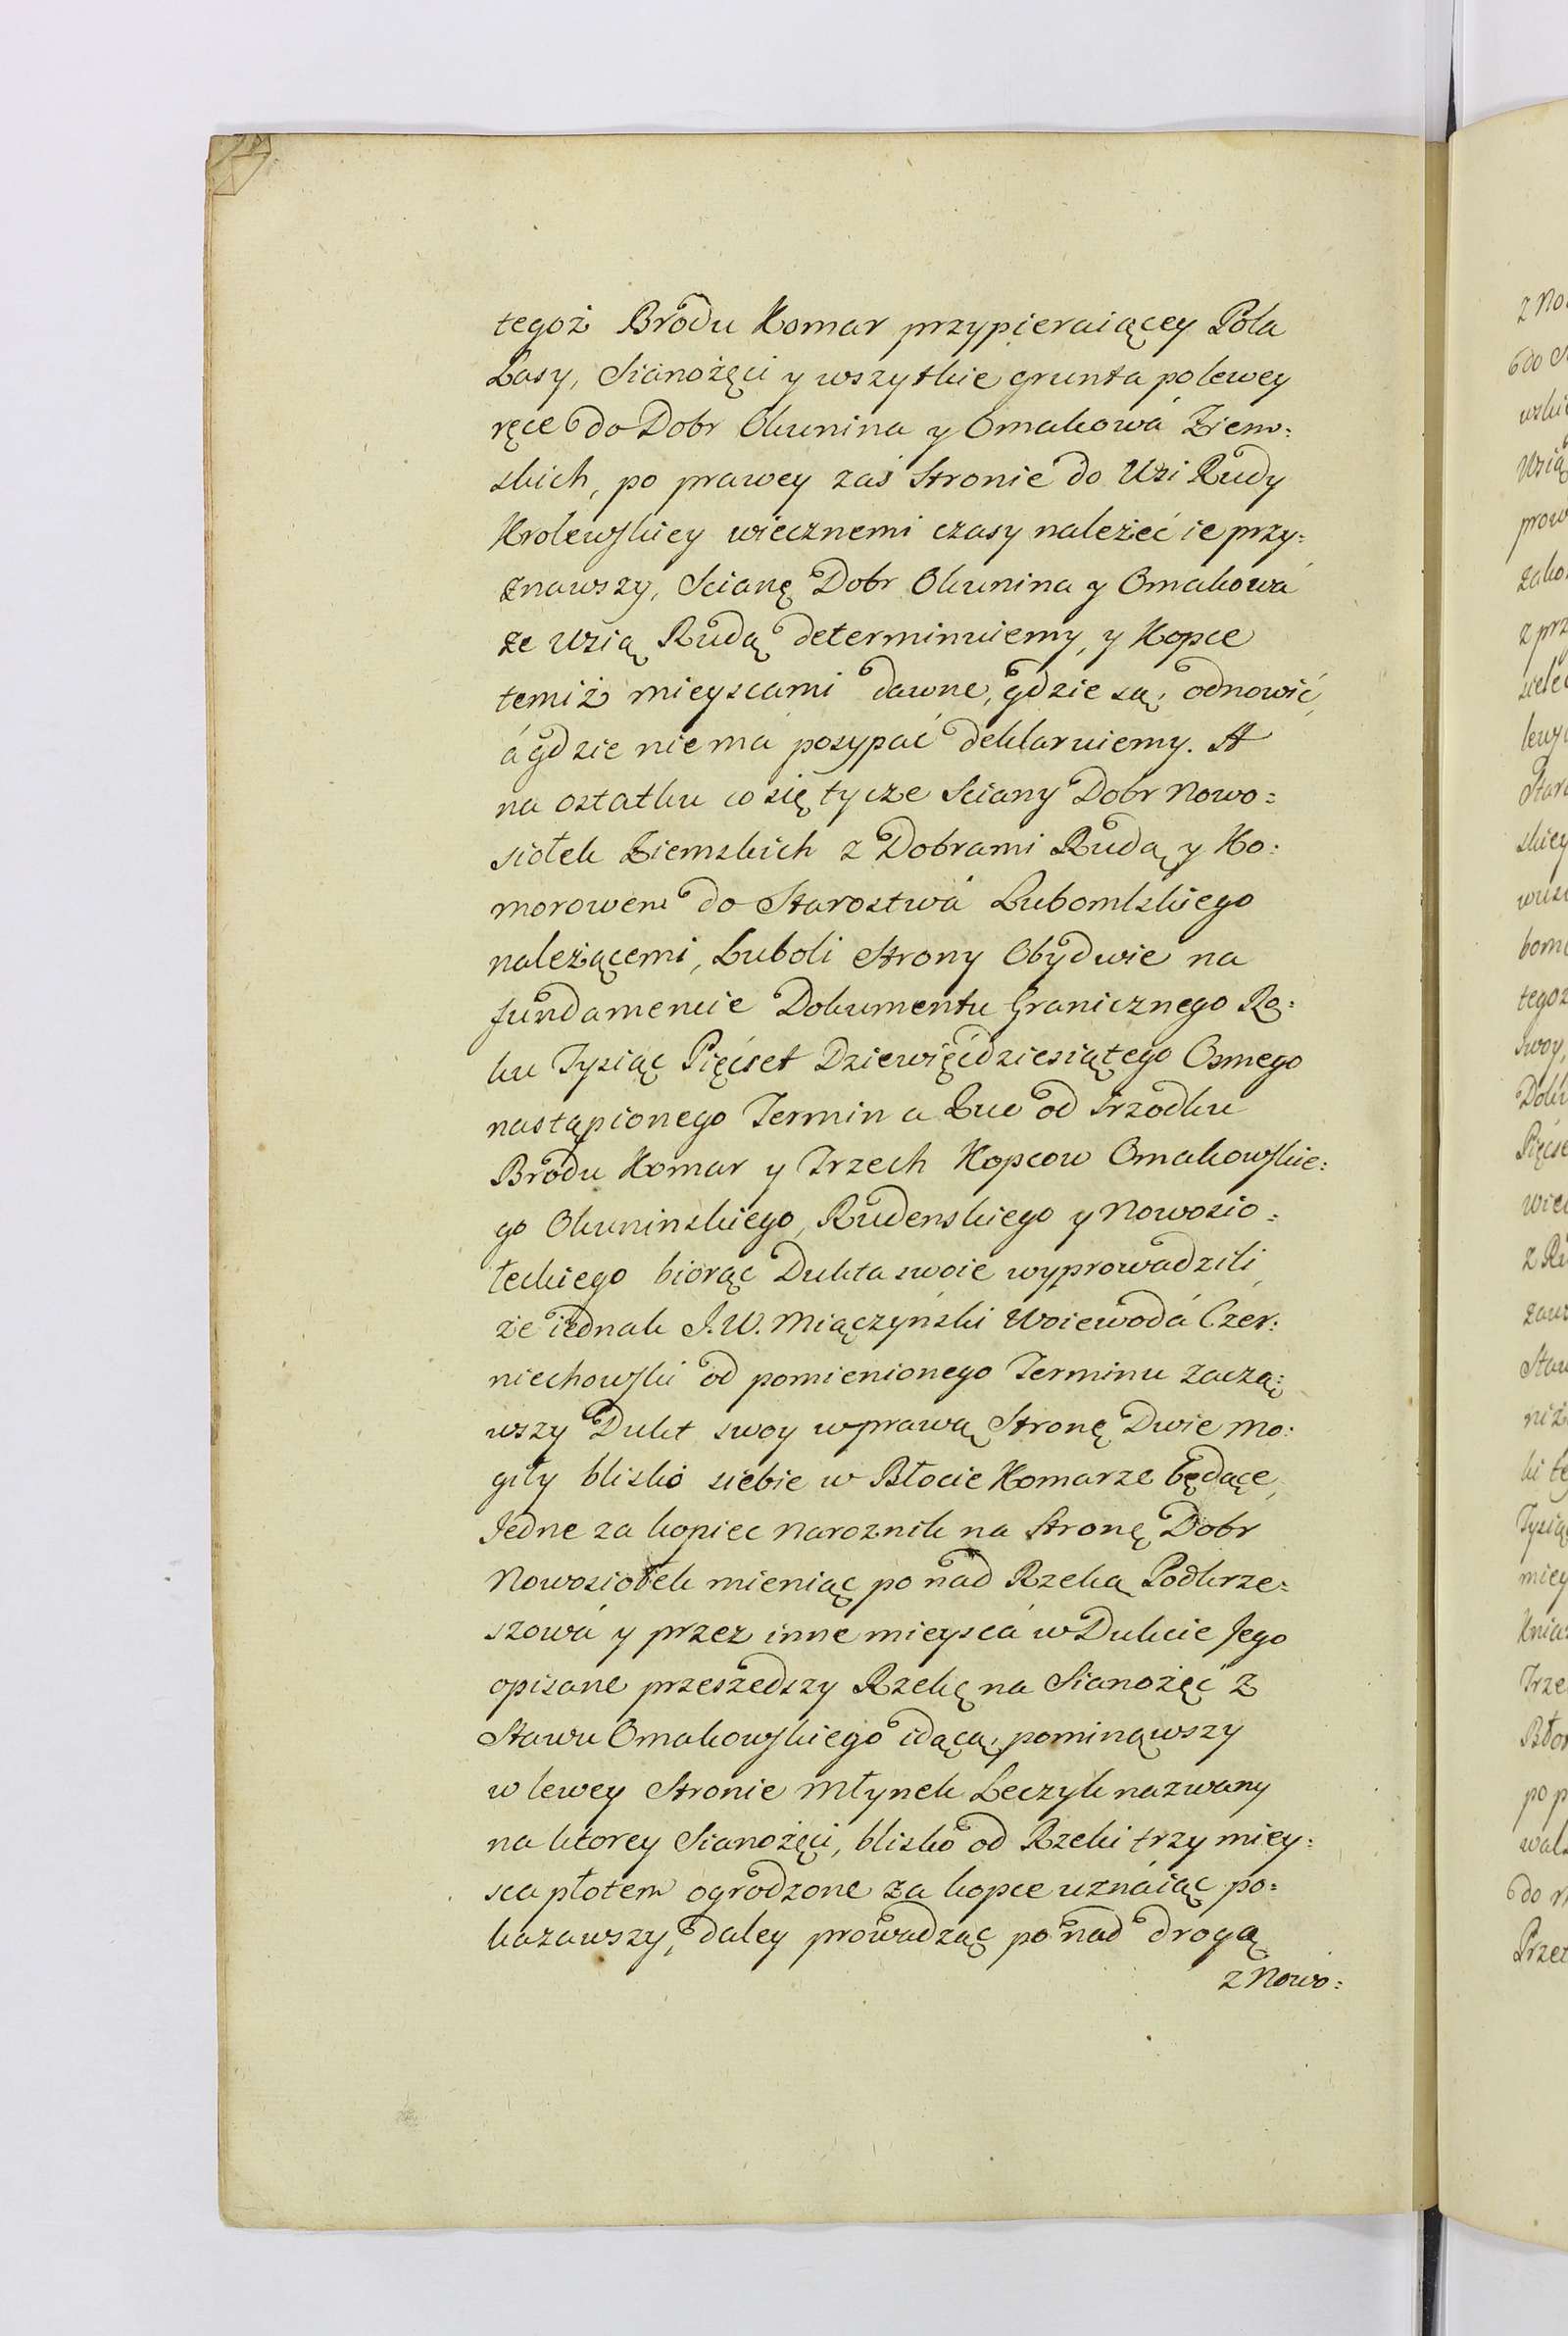 tegoż Brodu Komar przypieraiącey Pola
Lasy, Sianożęci y wszytkie grunta po lewey
ręce do Dobr Okunina y Omakowá Ziem=
skich, po prawey zaś Stronie do Wsi Rudy
Krolewskiey wiecznemi czasy należeć ie przy=
znawszy, Scianę Dobr Okunina y Omakowá
ze Wsią Rudą determinuiemy, y Kopce
temiż mieyscami dawne, gdzie są, odnowić,
á gdzie nie má posypać deklaruiemy. A
na ostatku co się tycze Sciany Dobr Nowo=
siołek Ziemskich z Dobrami Rudą y Ko=
morowem do Starostwá Lubomlskiego
należącemi, Luboli Strony Obydwie na
fundamencie Dokumentu Granicznego Ro=
ku Tysiąc Pięćset Dziewięćdziesiątego Osmego
nastąpionego Termin a Quo od srzodku
Brodu Komar y Trzech Kopcow Omakowskie=
go Okuninskiego, Rudenskiego y Nowosio=
łeckiego biorąc Dukta swoie wyprowadzili,
że iednak J. W. Miączyński Woiewodá Czer=
niechowski od pomienionego Terminu zaczą=
wszy Dukt swoy w prawą Stronę Dwie Mo=
giły blisko siebie w Błocie Komarze będące,
Jedne za kopiec Naroznik na Stronę Dobr
Nowosiołek mieniąc po nad Rzeką Podkrze=
szowá y przez inne mieyscá w Dukcie Jego
opisane przeszedszy Rzekę na Sianożęć z
Stawu Omakowskiego idącą, pominąwszy
w lewey Stronie Młynek Leczyk nazwany
na ktorey Sianożęci, blisko od Rzeki trzy miey=
sca płotem ogrodzone za kopce uznáiąc po=
kazawszy, daley prowadząc po nad drogą
z Nowo=
z No